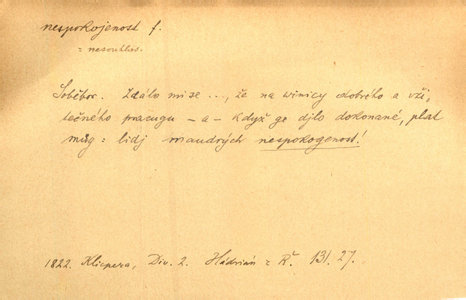 nespokojenost f.
= nesouhlas.
Soběbor. Zdálo mi se ..., že na winicy dobrého a uži,
tečného pracugu – a – když ge djlo dokonané, plat
můg: lidj maudrých nespokogenost!
1822. Klicpera, Div. 2. Hadrián z Ř. 131. 27.